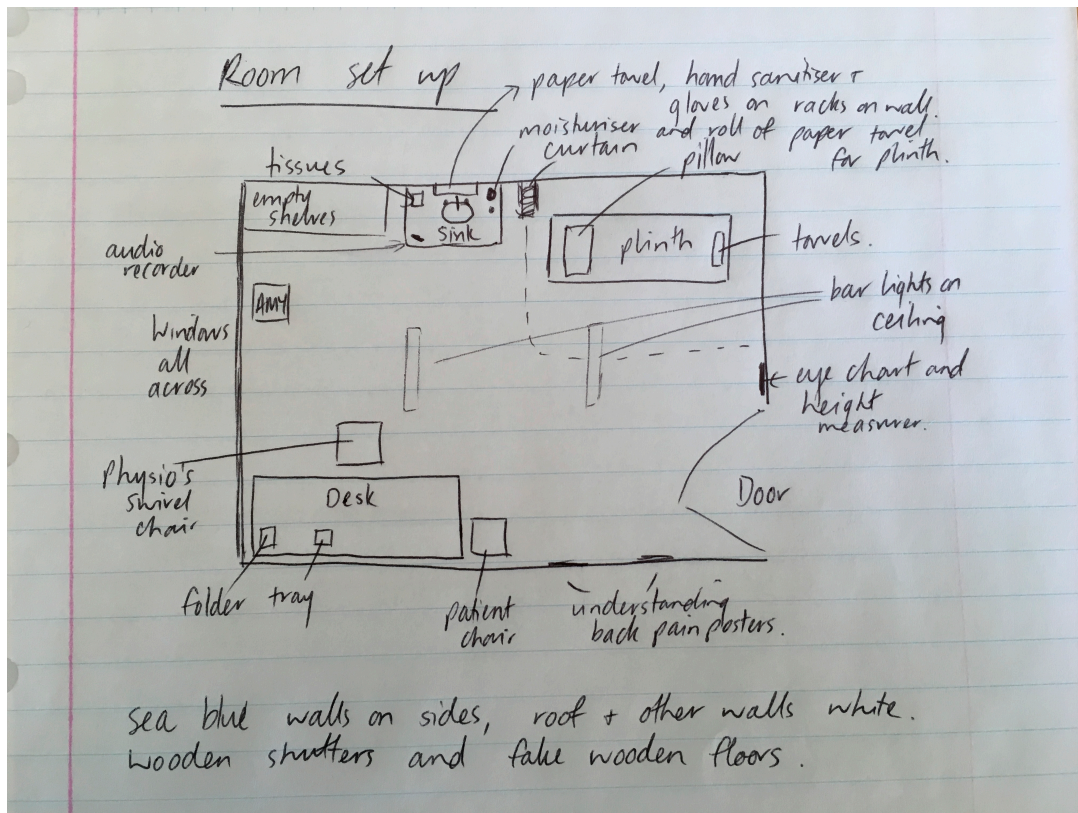 Room set up
paper towel, hand sanitiser +
gloves on racks on wall.
moisturiser and roll of paper towel
for plinth.
curtain
pillow
tissues
empty
shelves
sink
plinth
towels.
audio
recorder
AMY
bar lights on
ceiling
Windows
all
across
eye chart and
height
measurer.
Physio's
swivel
chair
Desk
Door
folder
tray
patient
chair
understanding
back pain posters.
sea blue walls on sides, roof + other walls white.
Wooden shutters and fake wooden floors.